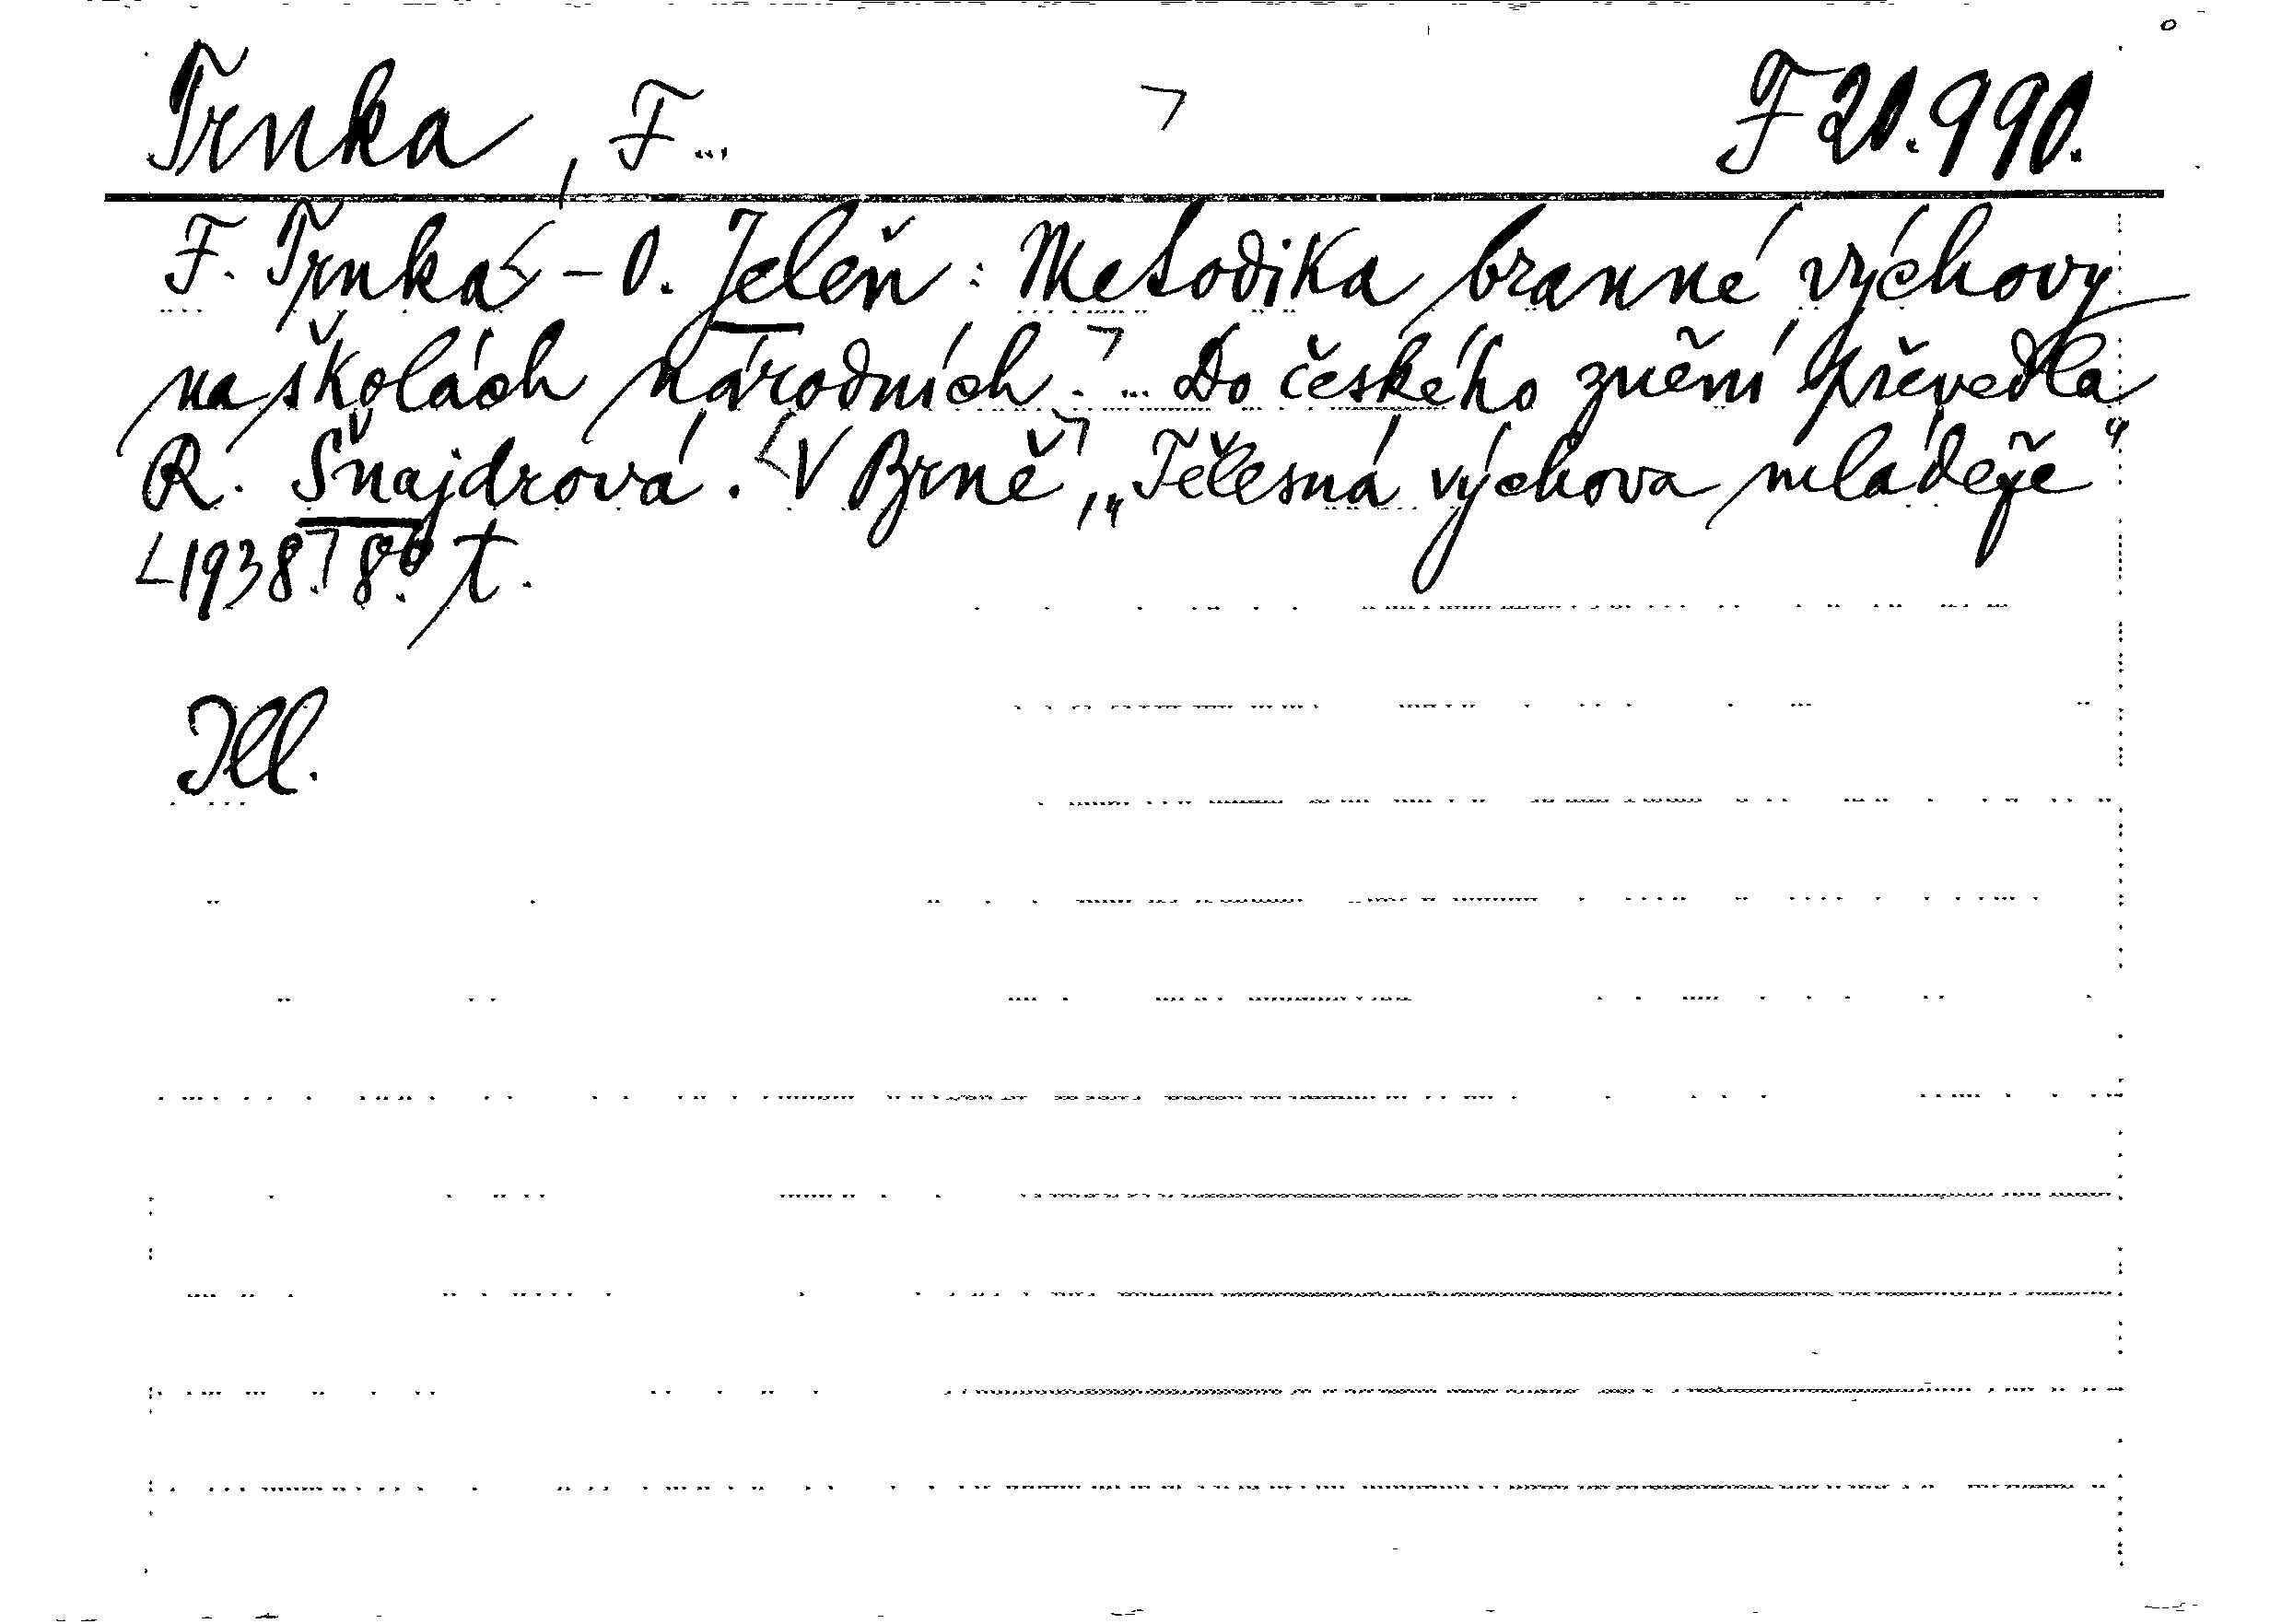 Trnka, F... F 20.990.
F. Trnka - O. Jeleň: Metodika branné výchovy
na školách národních. ... Do českého znění převedla
R. Šnajdrová. V Brně, „Tělesná výchova mládeže“
1938. 8° t.
Ill.